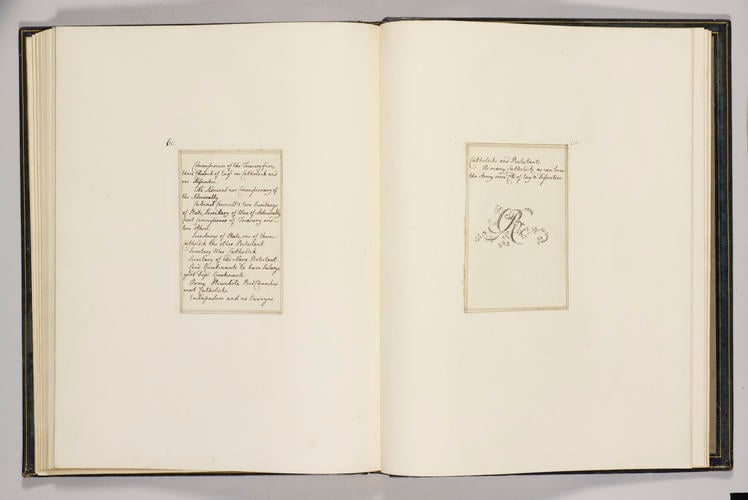 60
Commissioners of the Treasury five,
three Church of Engd one Catholick and
one Dissenter
No Admiral nor Commissionary of
the Admiralty
Cabinet Councill two Secretarys
of State, Secretary of War, of Admiralty
first Commissioner of Treasury and
two others
Secretarys of State, one of them
Catholick the other Protestant
Secretary War Catholick
Secretary of the Navy Protestant
Lord Lieutenants to have Salarys
Lieutenants
Army Household, Bed Chamber
most Catholicks
Embassadors and no Envoyes
Catholicks and Protestants
As many Catholicks as can be in
the Army some Ch. of Eng. & Dissenters